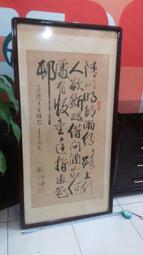 清明時節雨紛紛路上行
人欲斷魂借問酒家何
處有牧童遙指杏花
邨